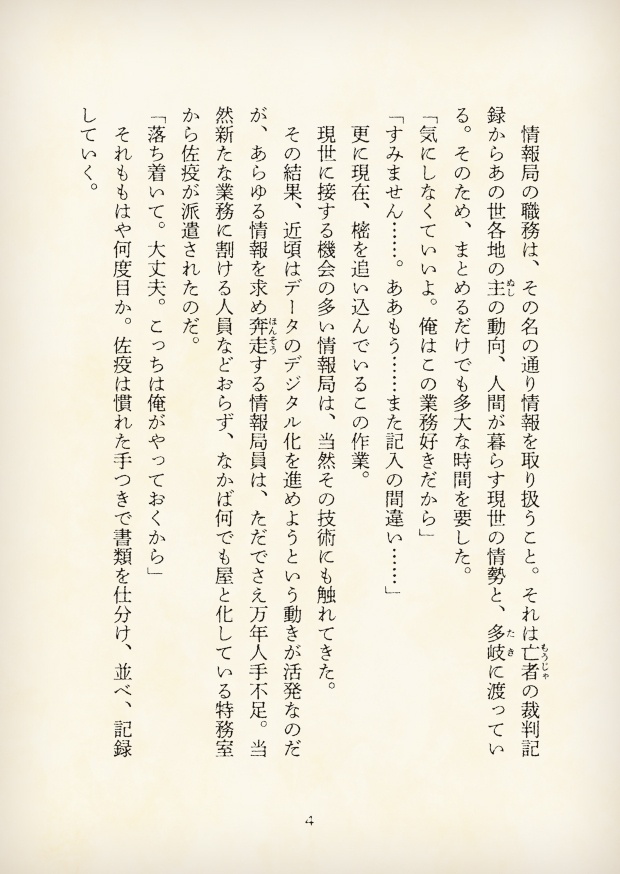 情報局の職務は、その名の通り情報を取り扱うこと。それは亡者の裁判記
録からあの世各地の主の動向、人間が暮らす現世の情勢と、多岐に渡ってい
る。そのため、まとめるだけでも多大な時間を要した。
「気にしなくていいよ。俺はこの業務好きだから」
「すみません……。ああもう……また記入の間違い……」
更に現在、樒を追い込んでいるこの作業。
現世に接する機会の多い情報局は、当然その技術にも触れてきた。
その結果、近頃はデータのデジタル化を進めようという動きが活発なのだ
が、あらゆる情報を求め奔走する情報局員は、ただでさえ万年人手不足。当
然新たな業務に割ける人員などおらず、なかば何でも屋と化している特務室
から佐疫が派遣されたのだ。
「落ち着いて。大丈夫。こっちは俺がやっておくから」
それももはや何度目か。佐疫は慣れた手つきで書類を仕分け、並べ、記録
していく。
4